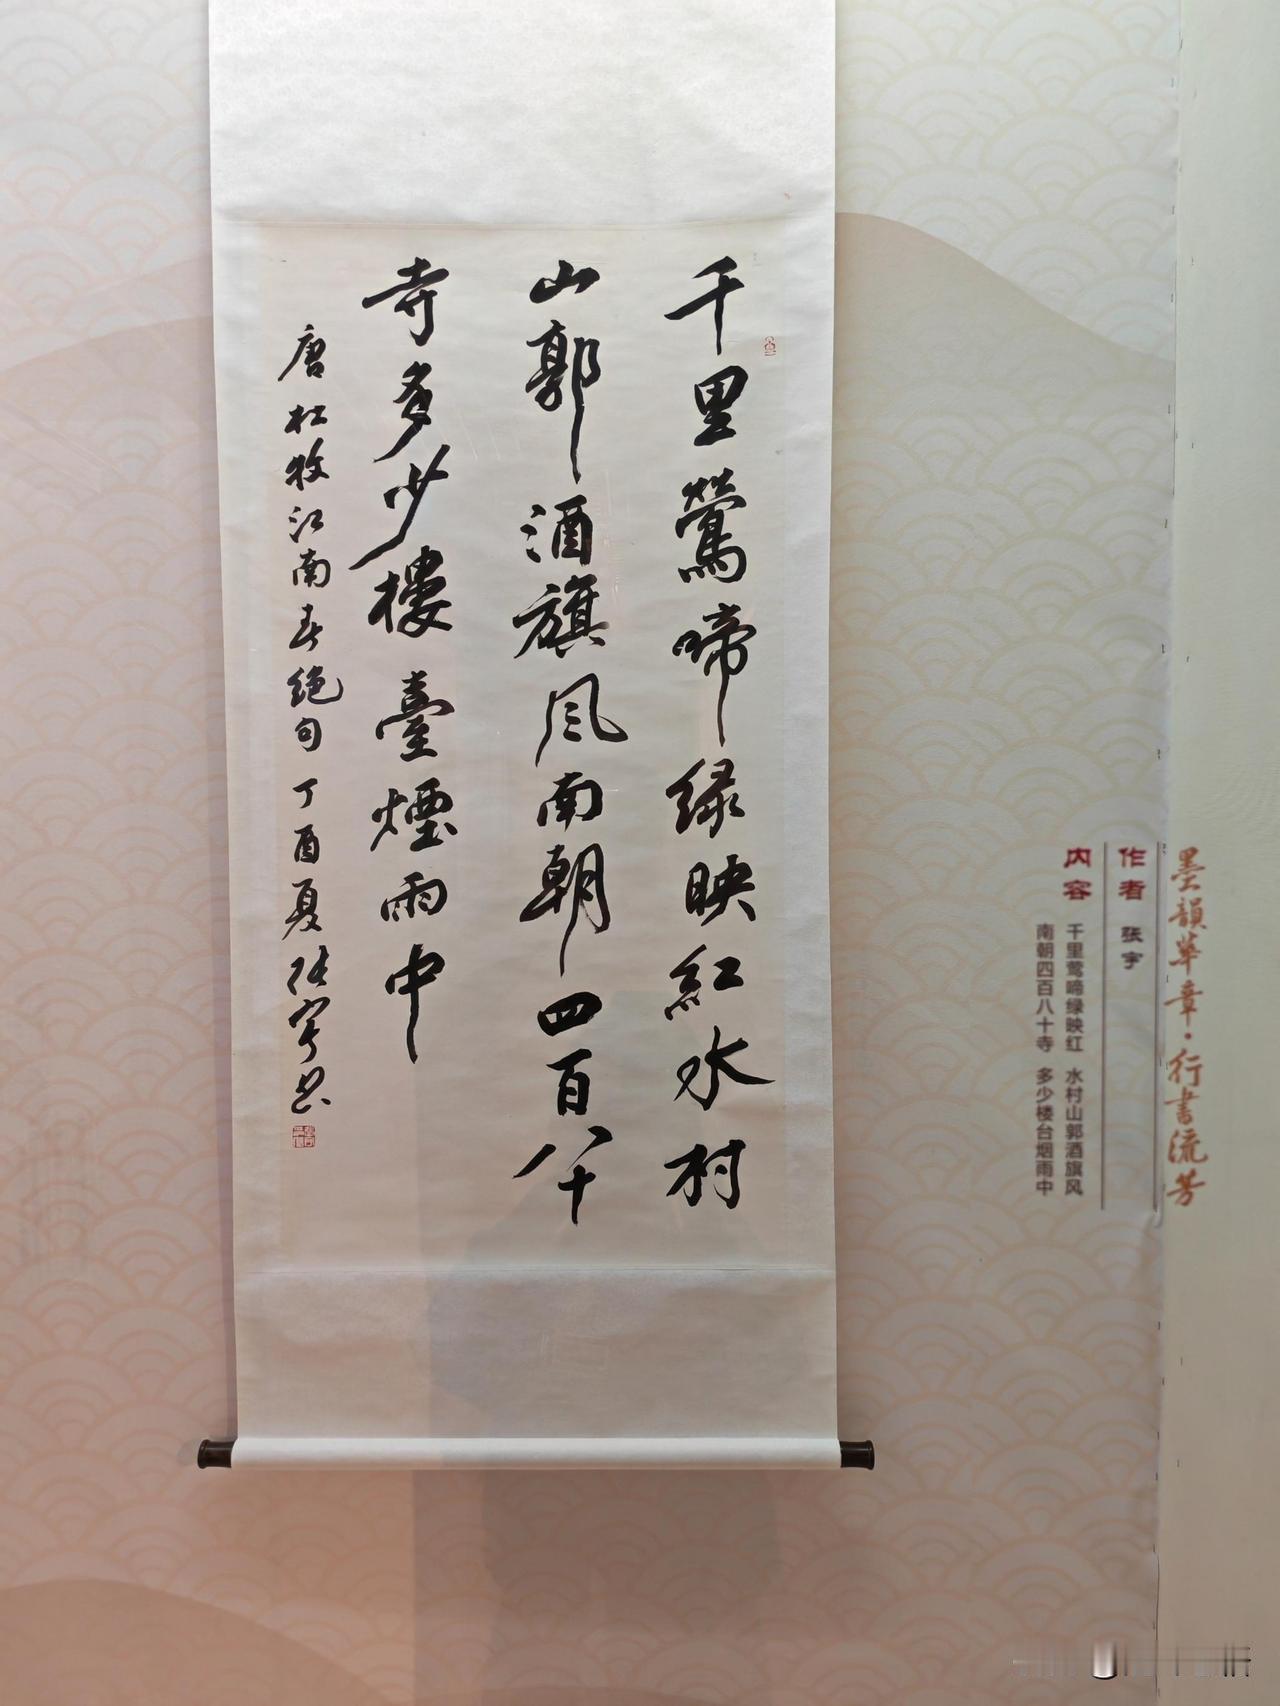 千里鶯啼绿映紅水村
山郭酒旗风南朝四百八十
寺多少樓臺煙雨中
唐杜牧江南春绝句丁酉夏张宇书
墨韻华章·行書流芳
作者 張宇
内容 千里莺啼绿映红 水村山郭酒旗风
南朝四百八十寺 多少楼台烟雨中